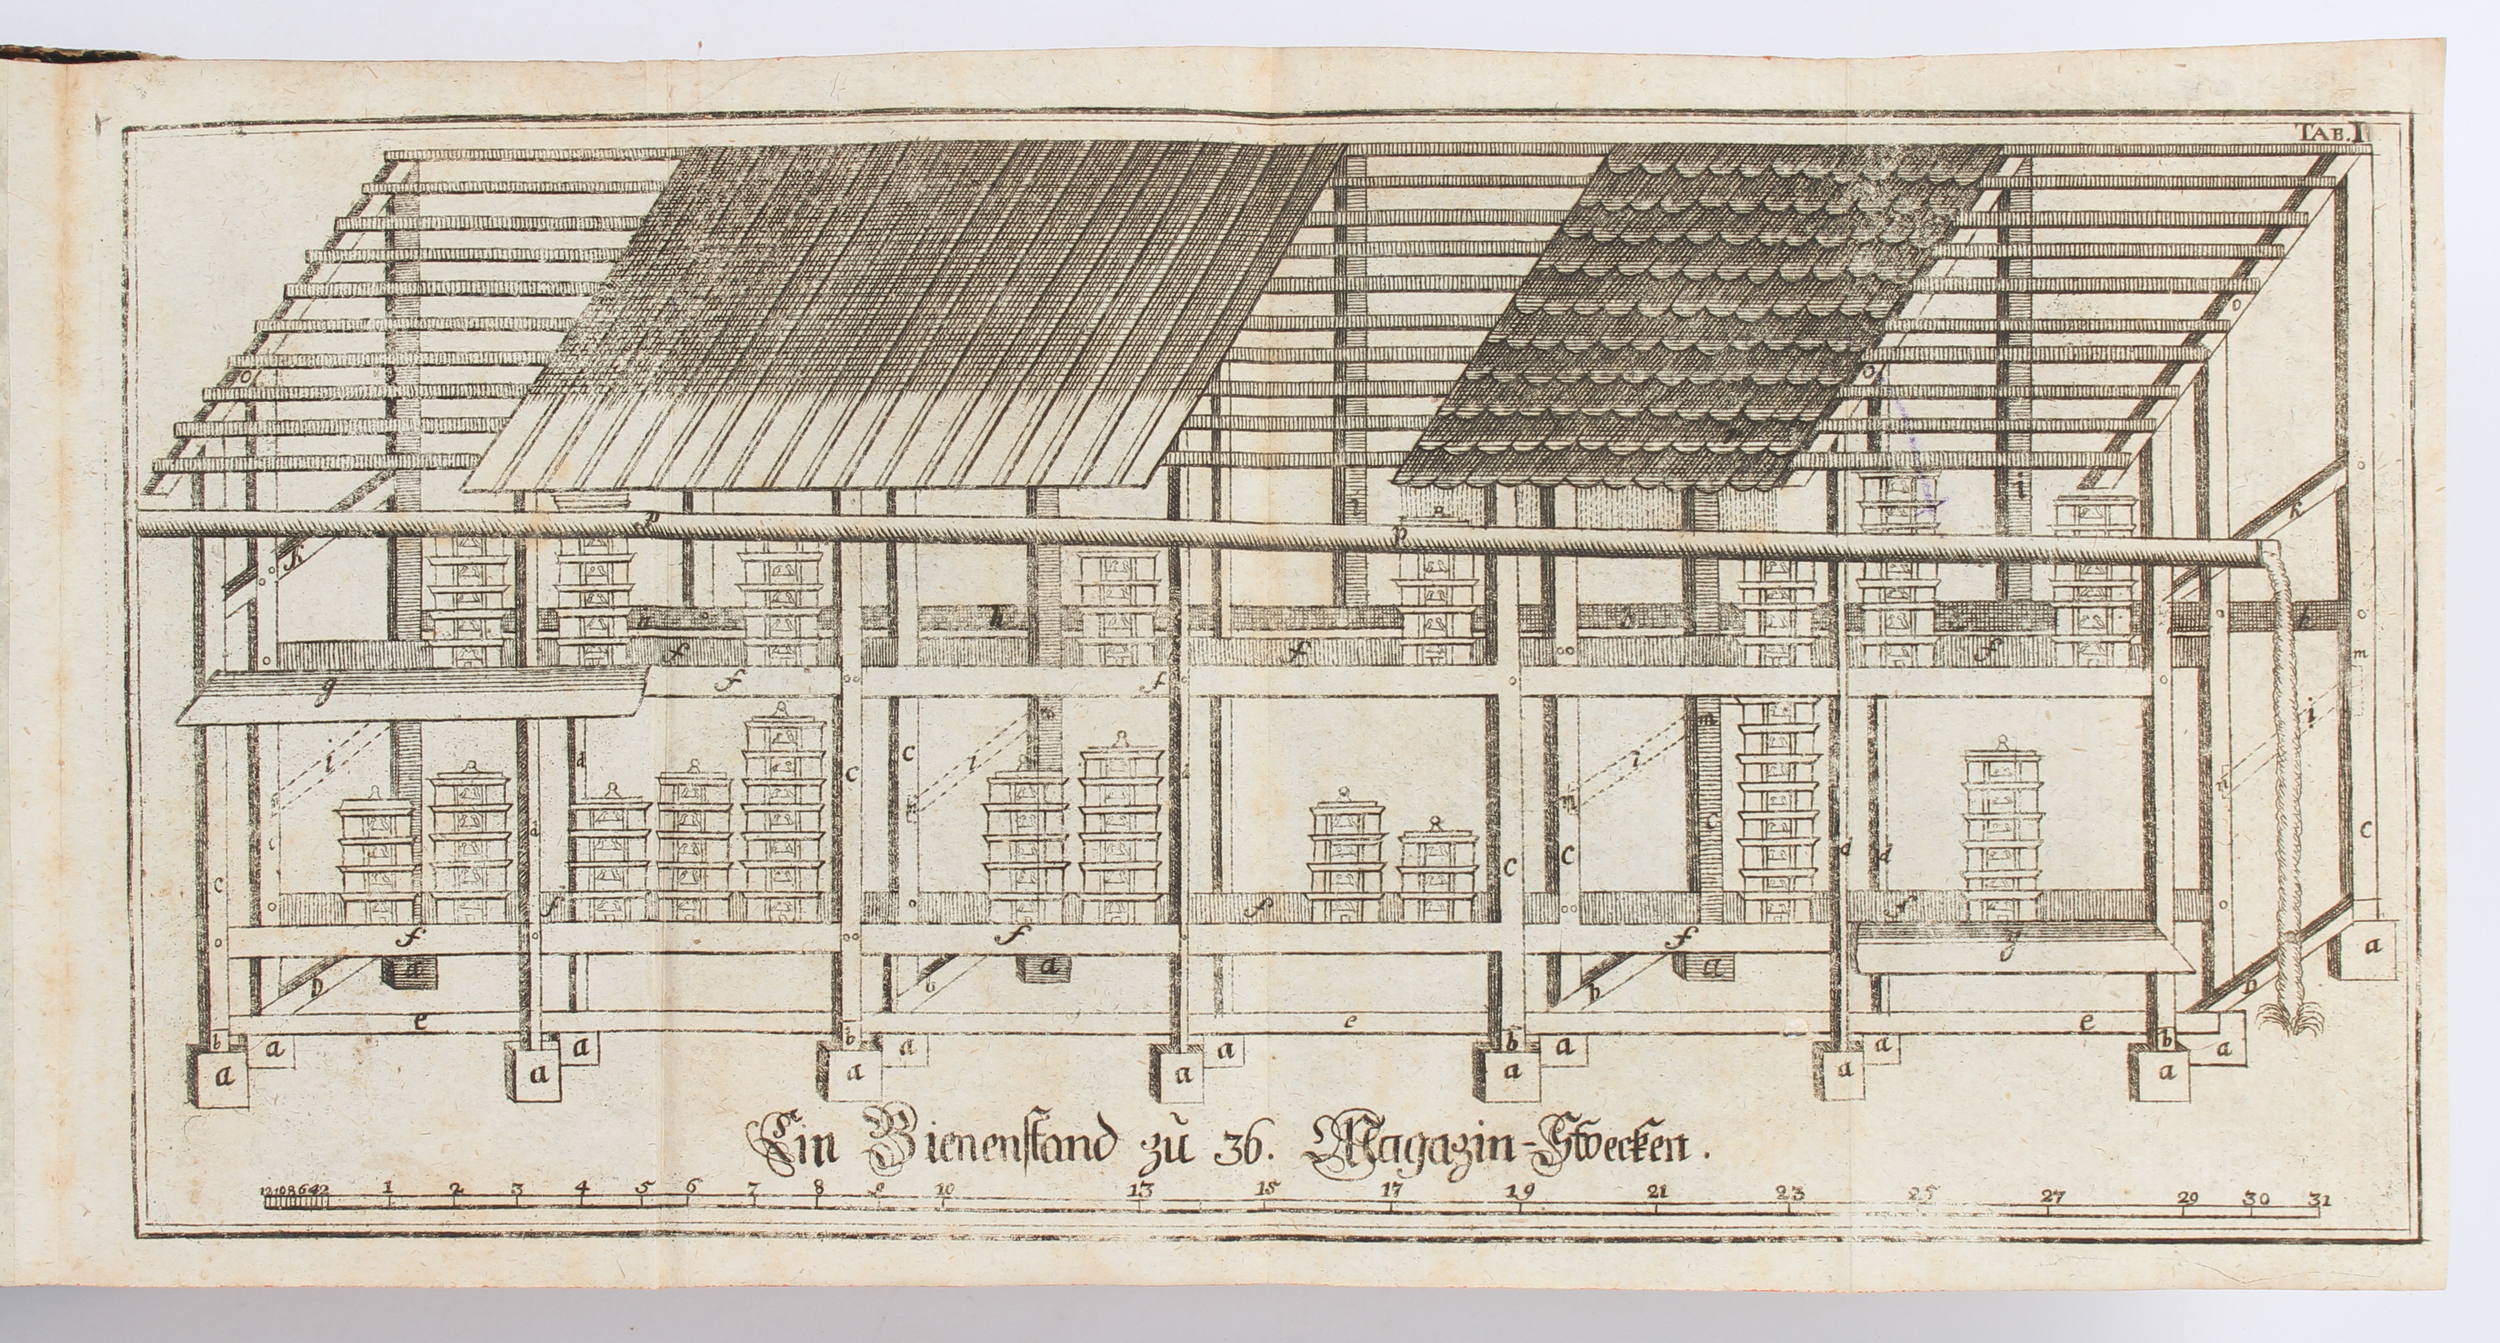 TAB. I
p p
k i i k
n n
f f f
m
g f f
m m
i i i i
d c c
m m
c d c c d d c
f f f
f f f g
a a a
b b b
e e e
b a a b a a b a a b a
a a a a a a a
Ein Bienenstand zu 36. Magazin-Stoecken.
12 10 8 6 4 2 1 2 3 4 5 6 7 8 9 10 13 15 17 19 21 23 25 27 29 30 31